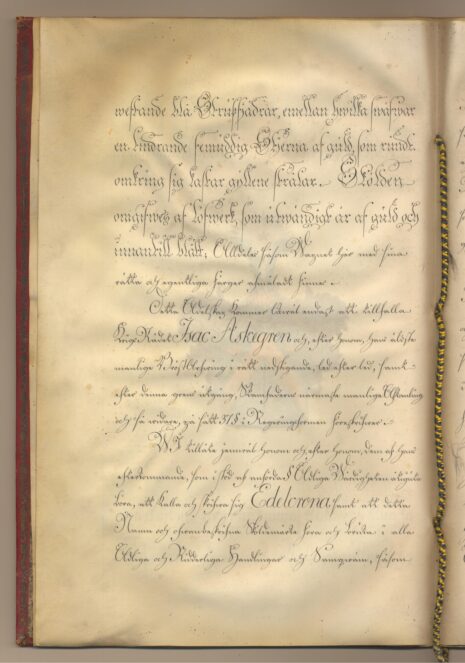 blå Strussfjädrar, emellan hvilka swäfwar
en Tindrande Femuddig Stjerna af guld, som rundt
omkring sig kastar gyllene strålar. Skölden
omgifwes af Löfwerk, som utwändigt är af guld och
innantill blått; Alldeles såsom Wapnet här med sina
rätta och egentliga färger afmåladt finnes.
Detta Adelskap kommer likwäl endast att tillfalla
Krigs Rådet Isac Askegren och, efter honom, hans äldste
manlige Bröst Arfwinge i rätt nedstigande led efter led, samt
efter denna gren utgång, Stamfadrens närmaste manliga Afkomling
och så widare, på sätt 37 § i Regeringsformen föreskrifwer.
Wi tillåte jemwäl honom och, efter honom, dem af hans
efterkommande, som i stöd af anförda § Adliga Wärdigheten
böra, att kalla och skrifwa sig Edelcrona samt att detta
Namn och ofwanbeskrifna Sköldemärke föra och bruka i alla
Adliga och Ridderliga Handlingar och Samqwäm, såsom